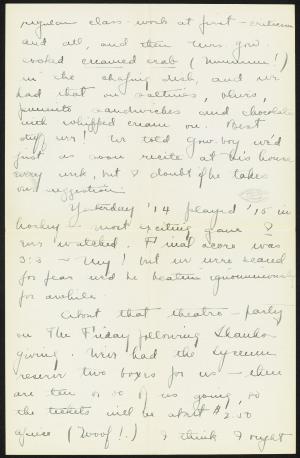 regular class-work at first - criticism
and all, and then Mrs. Gow.
cooked creamed crab (Mmmmm!)
in the chafing dish, and we
had that on saltines, olives,
pimento sandwiches and chocolate
with whipped cream on. Best
stuff ever! We told Gow-boy we'd
just as soon recite at his house
every week, but I doubt if he takes
our suggestion.
Yesterday '14 played '15 in
hockey - most exciting game I
ever watched. Final score was
3:3 - My! but we were scared
for fear we'd be beaten ignominiously
for awhile.
About that theatre-party
on the Friday following Thanks-
giving. We've had the Lyceum
reserve two boxes for us - there
are ten or so of us going, so
the tickets will be about $2.50
apiece (Woof!.) I think I ought